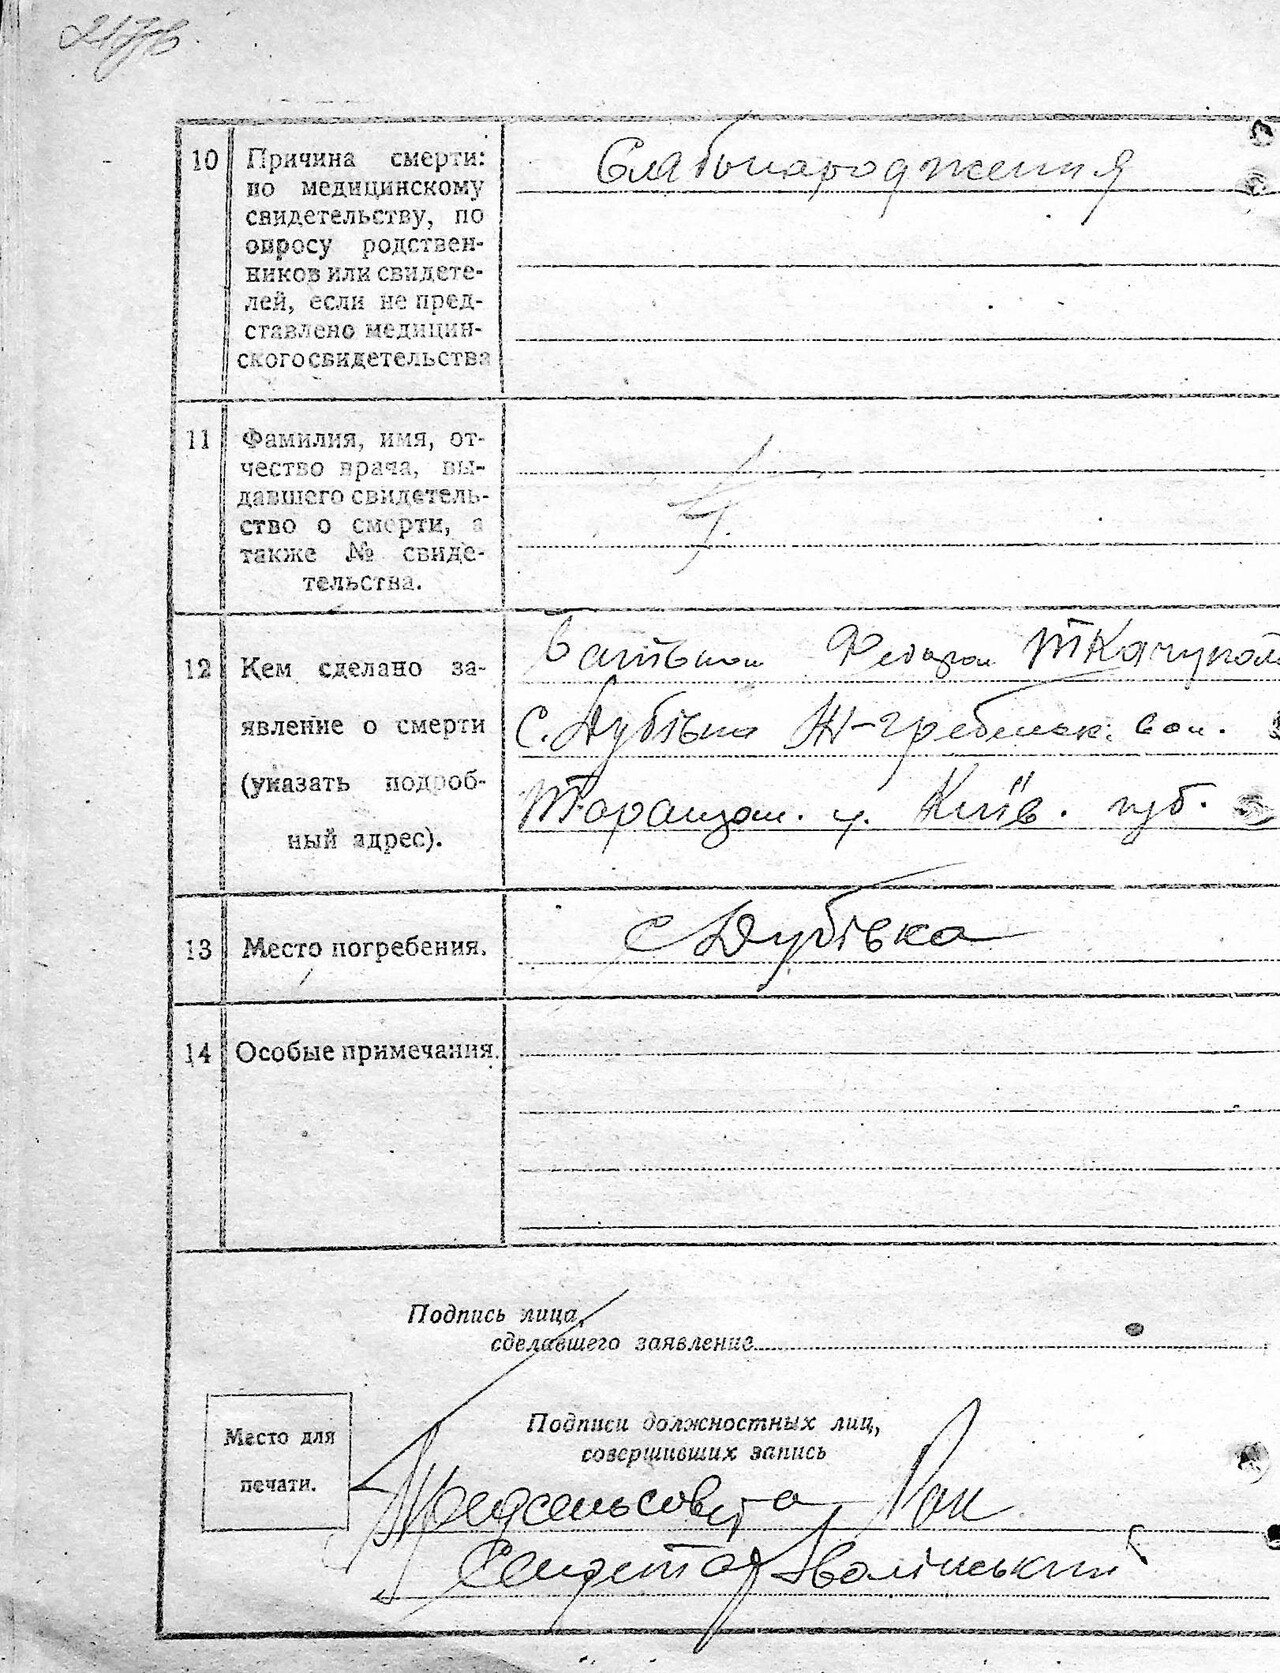 10
Причина смерти:
по медицинскому
свидетельству, по
опросу родствен-
ников или свидете-
лей, если не пред-
ставлено медицин-
ского свидетельства
Слабонародження
11
Фамилия, имя, от-
чество врача, вы-
давшего свидетель-
ство о смерти, а
также № свиде-
тельства.
12
Кем сделано за-
явление о смерти
(указать подроб-
ный адрес).
Батьком Федором Ткачуком
С. Дубівка Ж-гребельк. вол.
Таращан. у. Київ. губ.
13
Место погребения.
с Дубівка
14
Особые примечания.
Подпись лица,
сделавшего заявление
Место для
печати.
Подписи должностных лиц,
совершивших запись
Предсельсовета
Секретар